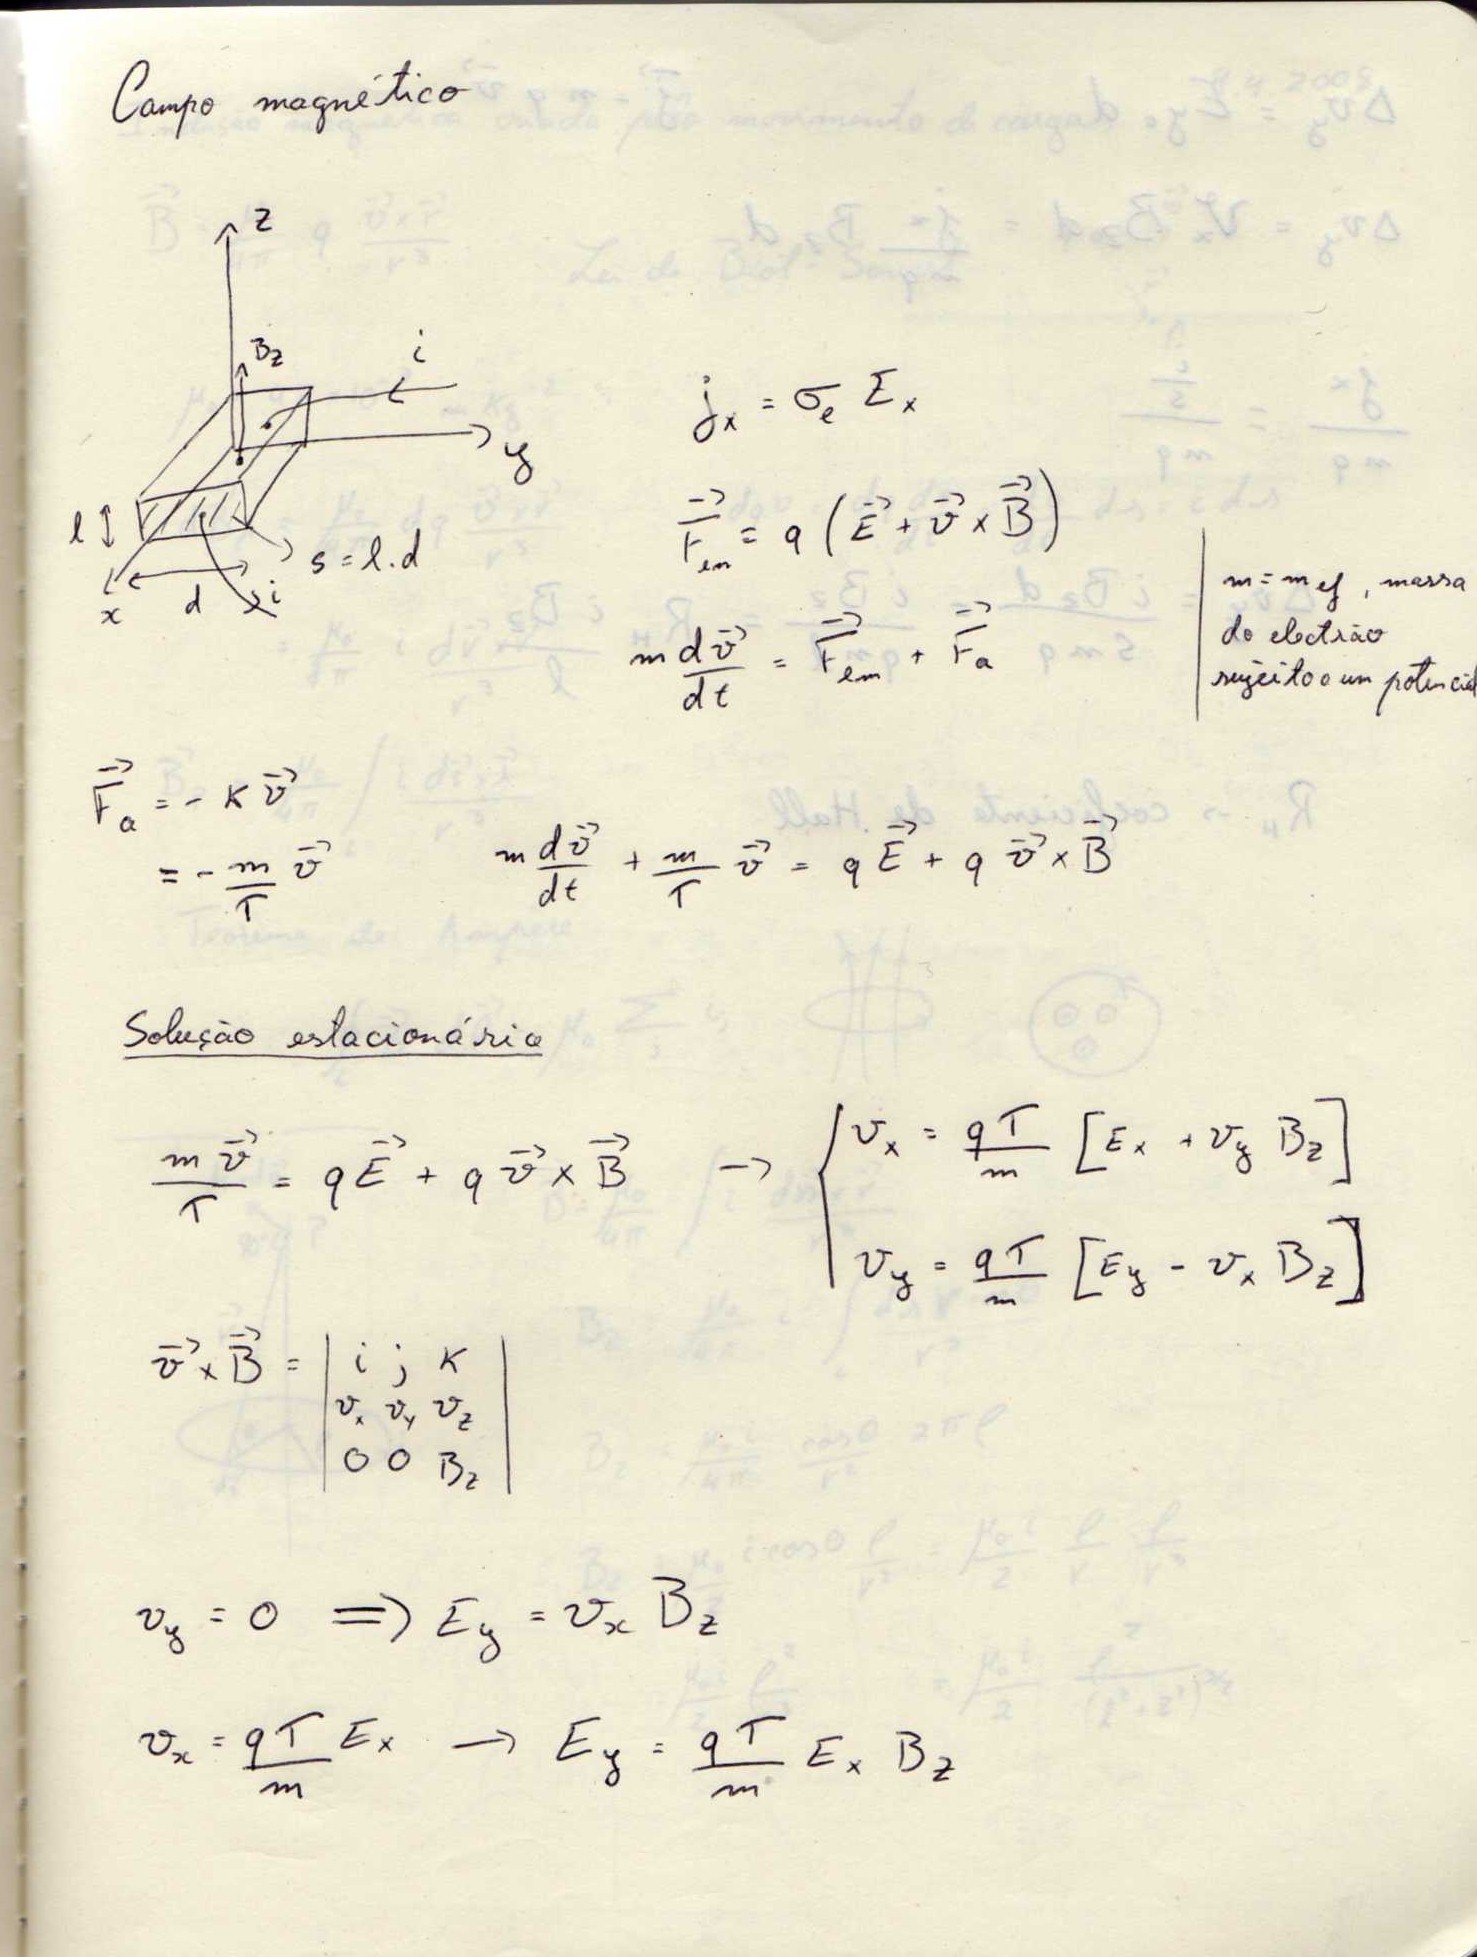 Campo magnético
z
Bz
i
y
l
s = l.d
x
d
i
jx = σe Ex
F⃗em = q (E⃗ + v⃗ × B⃗)
m dv⃗/dt = F⃗em + F⃗a
m = mef, massa
do electrão
sujeito a um potencial
F⃗a = - K v⃗
= - m/τ v⃗
m dv⃗/dt + m/τ v⃗ = q E⃗ + q v⃗ × B⃗
Solução estacionária
m v⃗/τ = q E⃗ + q v⃗ × B⃗ → { vx = qτ/m [Ex + vy Bz]
vy = qτ/m [Ey - vx Bz]
v⃗ × B⃗ = | i j K |
| vx vy vz |
| 0 0 Bz |
vy = 0 ⇒ Ey = vx Bz
vx = qτ/m Ex → Ey = qτ/m Ex Bz